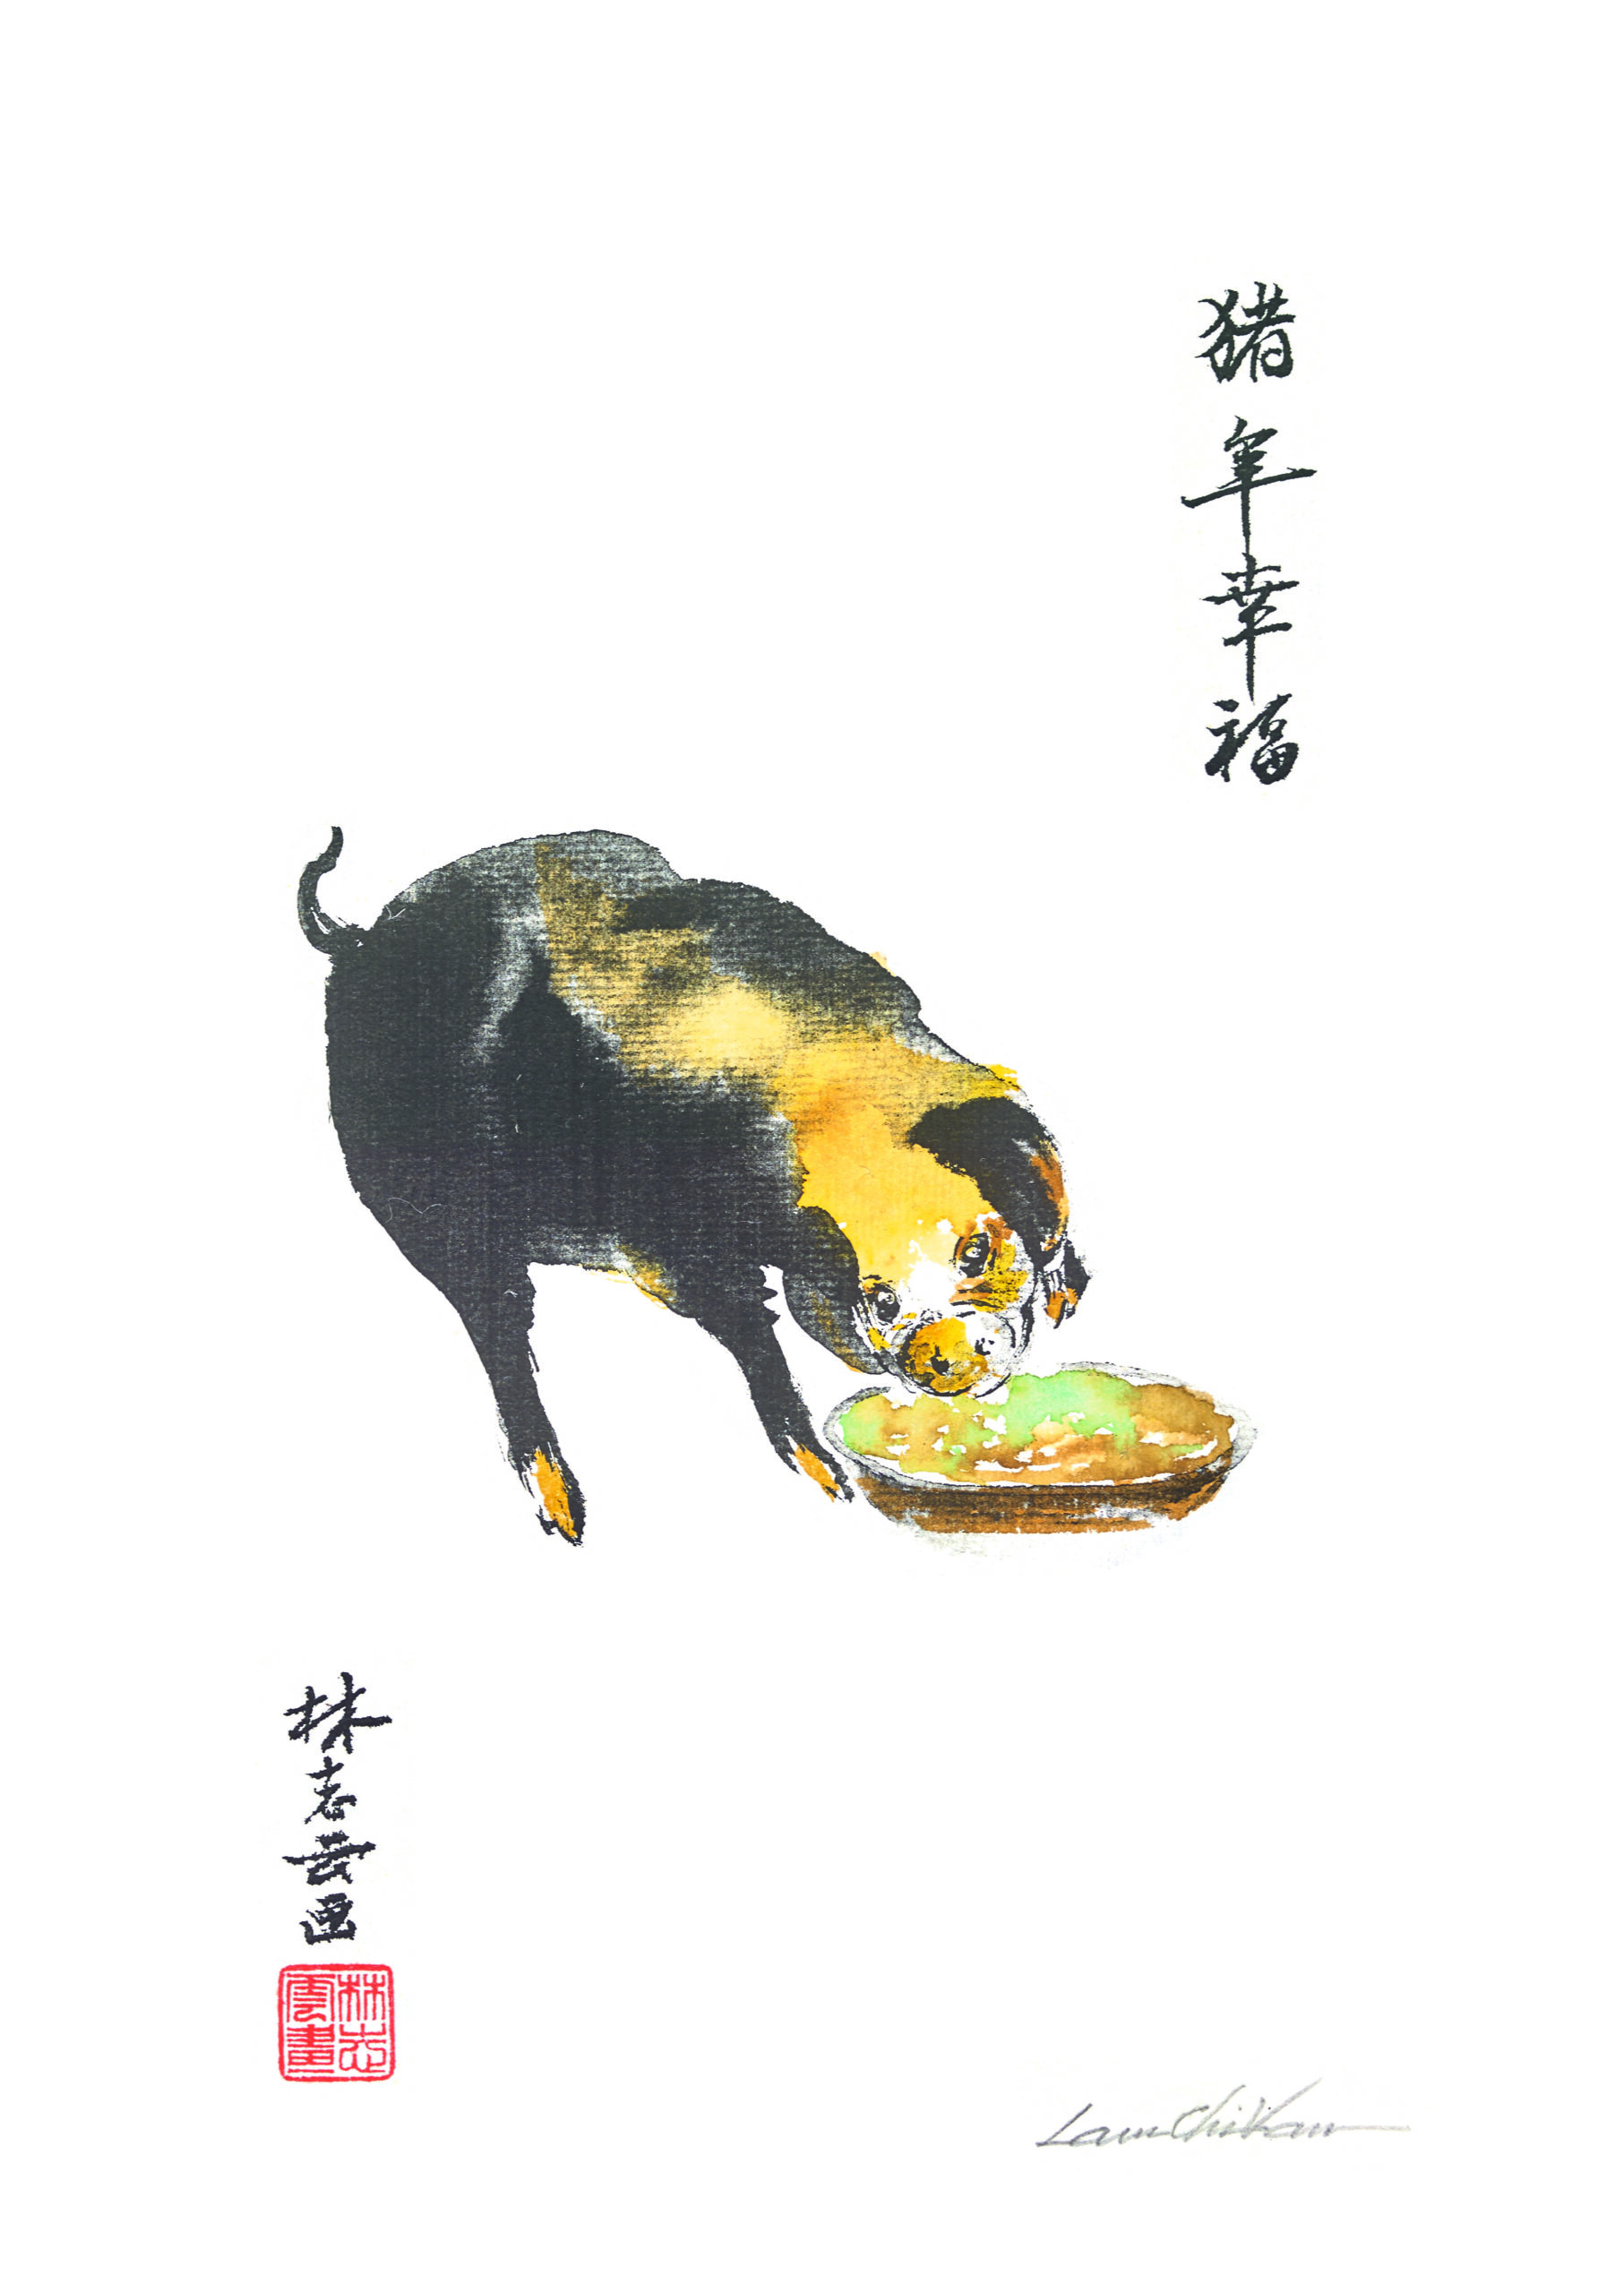 猪年幸福
林志雲画
林志雲畫